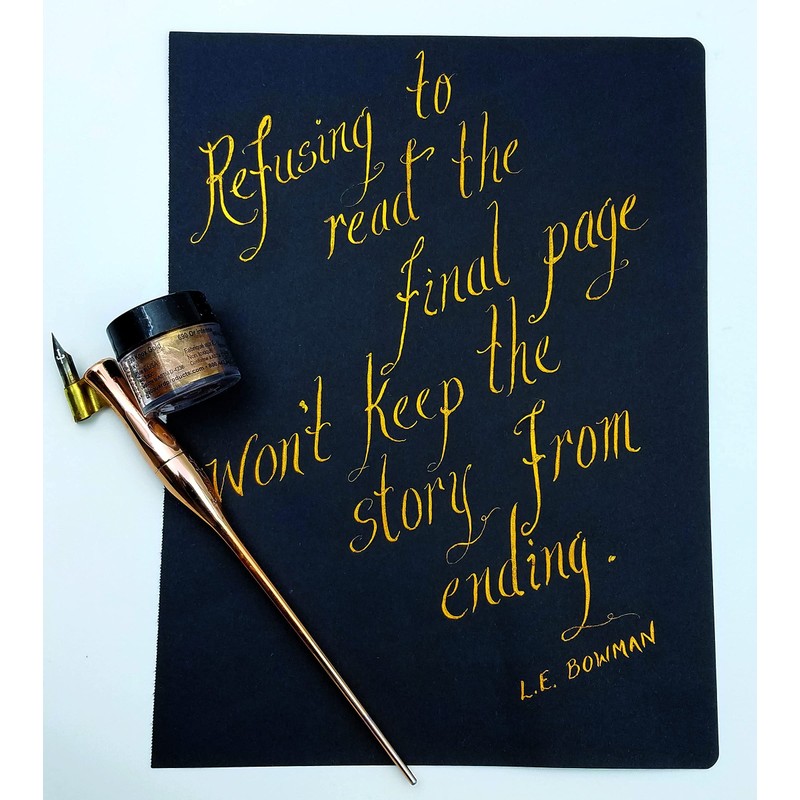 Refusing to
read the
final page
won't keep the
story from
ending.
L.E. BOWMAN